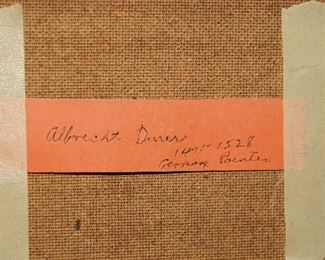 Albrecht Durer
1471-1528
German Painter